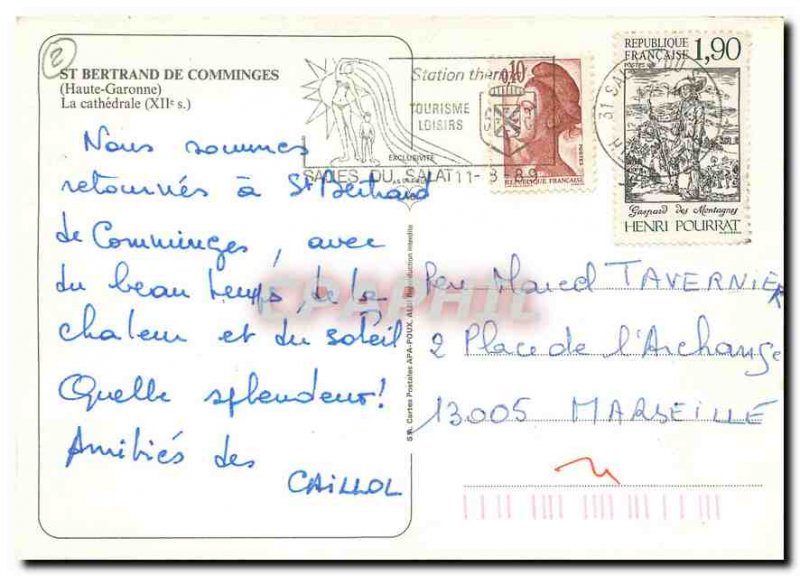 2
ST BERTRAND DE COMMINGES
(Haute-Garonne)
La cathédrale (XIIe s.)
Nous sommes
retournés à St Bertrand
de Comminges, avec
du beau temps, de la
chaleur et du soleil
Quelle splendeur!
Amitiés des
CAILLOL
Station therm
TOURISME
LOISIRS
SALIES DU SALAT 11-8-89
EXCLUSIVITÉ
0,10
POSTES
REPUBLIQUE FRANÇAISE
REPUBLIQUE
FRANÇAISE 1,90
31 SA
Gaspard des Montagnes
HENRI POURRAT
Sté. Cartes Postales APA-POUX, ALBI Reproduction interdite
EPAPHIL
Père Marcel TAVERNIER
2 Place de l'Archange
13005 MARSEILLE